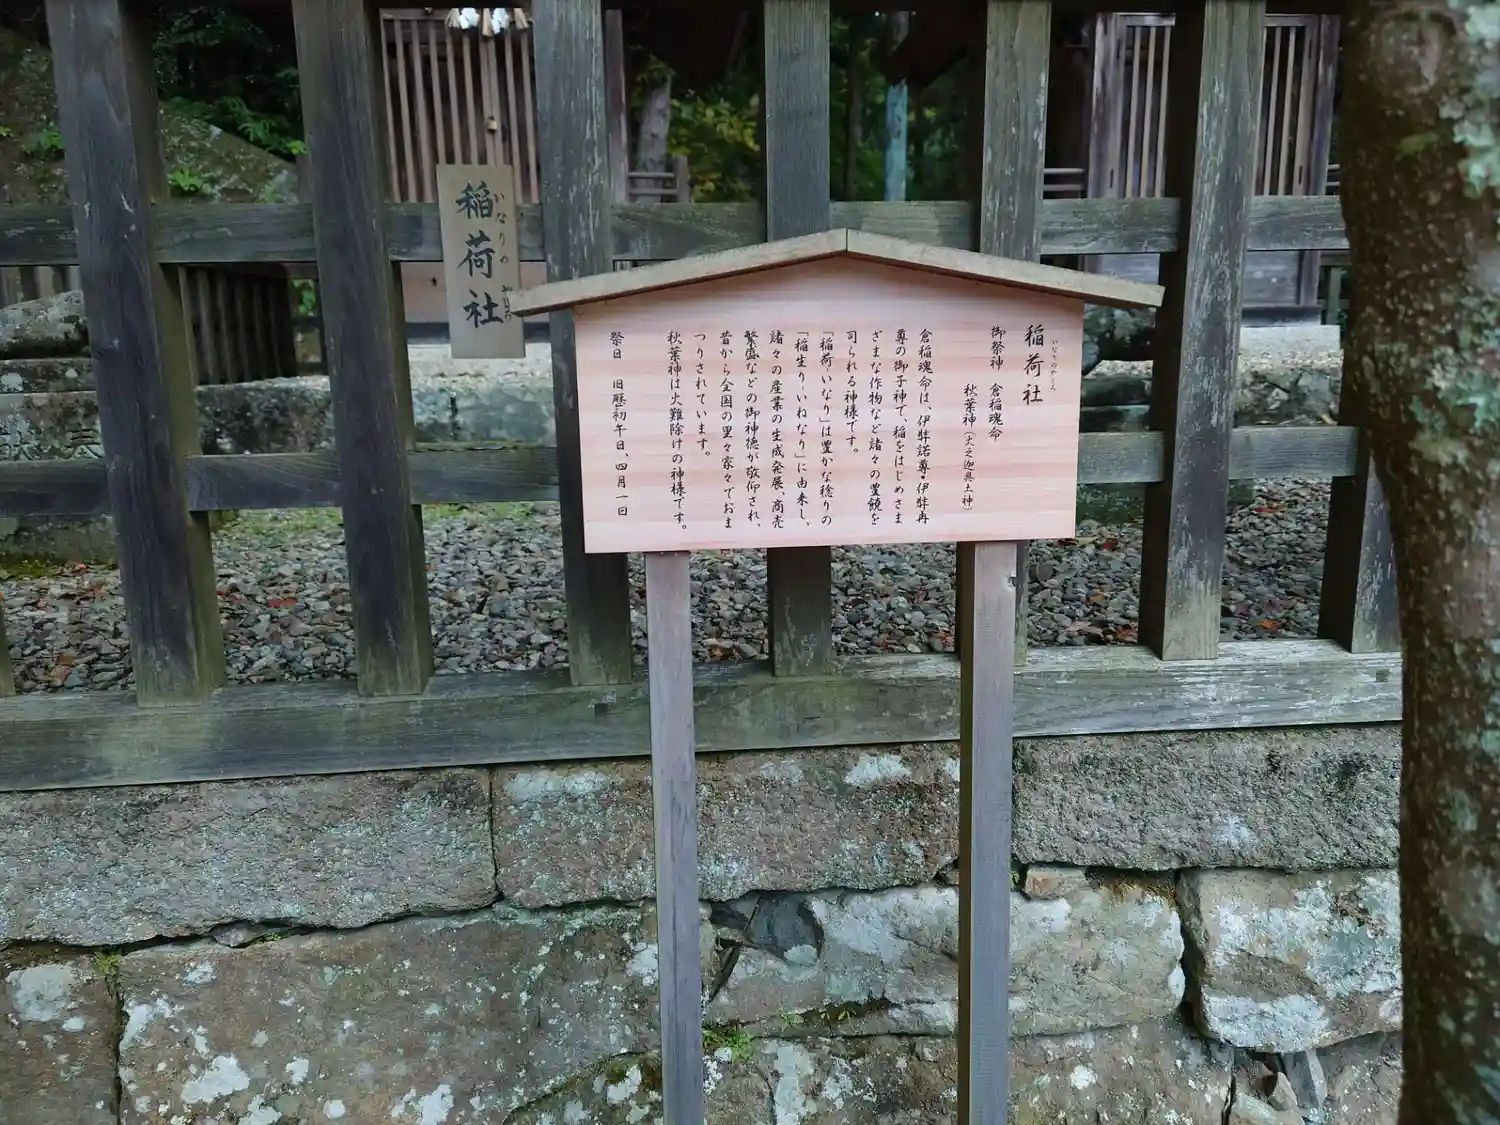 稲荷社
いなりのやしろ
御祭神 倉稲魂命
秋葉神(火之迦具土神)
倉稲魂命は、伊弉諾尊・伊弉冉
尊の御子神で、稲をはじめさま
ざまな作物など諸々の豊饒を
司られる神様です。
「稲荷・いなり」は豊かな稔りの
「稲生り・いねなり」に由来し、
諸々の産業の生成発展、商売
繁盛などの御神徳が敬仰され、
昔から全国の里々家々でおま
つりされています。
秋葉神は火難除けの神様です。
祭日 旧暦初午日、四月一日
稲荷社
いなりのやしろ